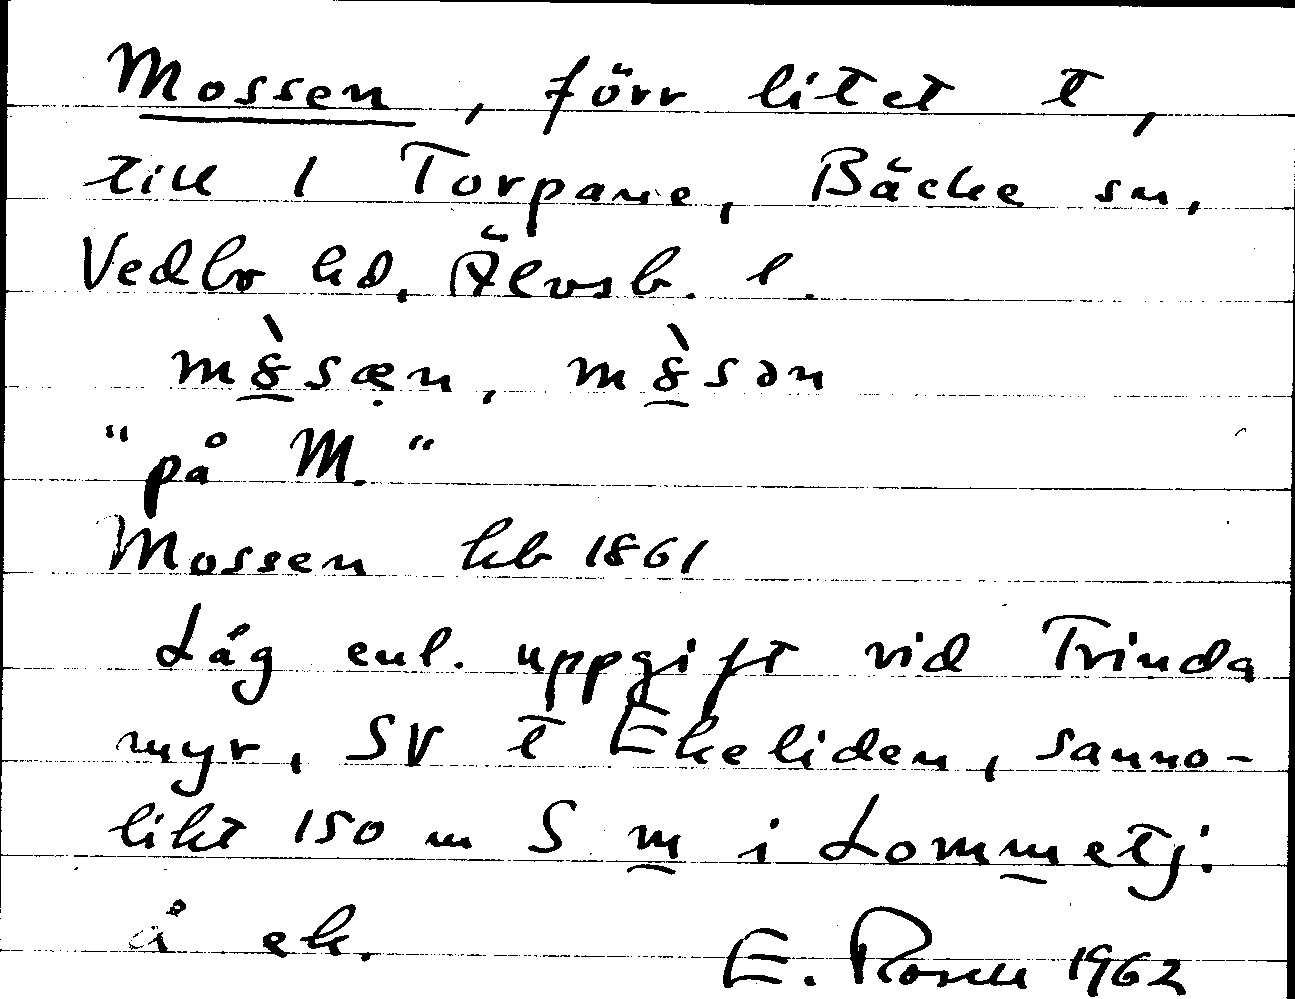 Mossen, förr litet t,
till 1 Torpane, Bäcke sn,
Vedbo hd, Älvsb. l.
m&̀sæ̣n, m&̀sən
"på M."
Mossen hb 1861
Låg enl. uppgift vid Trinda
myr, SV t Ekeliden, sanno-
likt 150 m S m i Lommetj:
å ek.
E. Rosell 1962